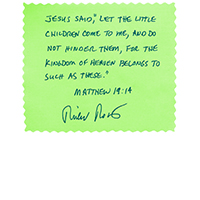 JESUS SAID, "LET THE LITTLE
CHILDREN COME TO ME, AND DO
NOT HINDER THEM, FOR THE
KINGDOM OF HEAVEN BELONGS TO
SUCH AS THESE."
MATTHEW 19:14